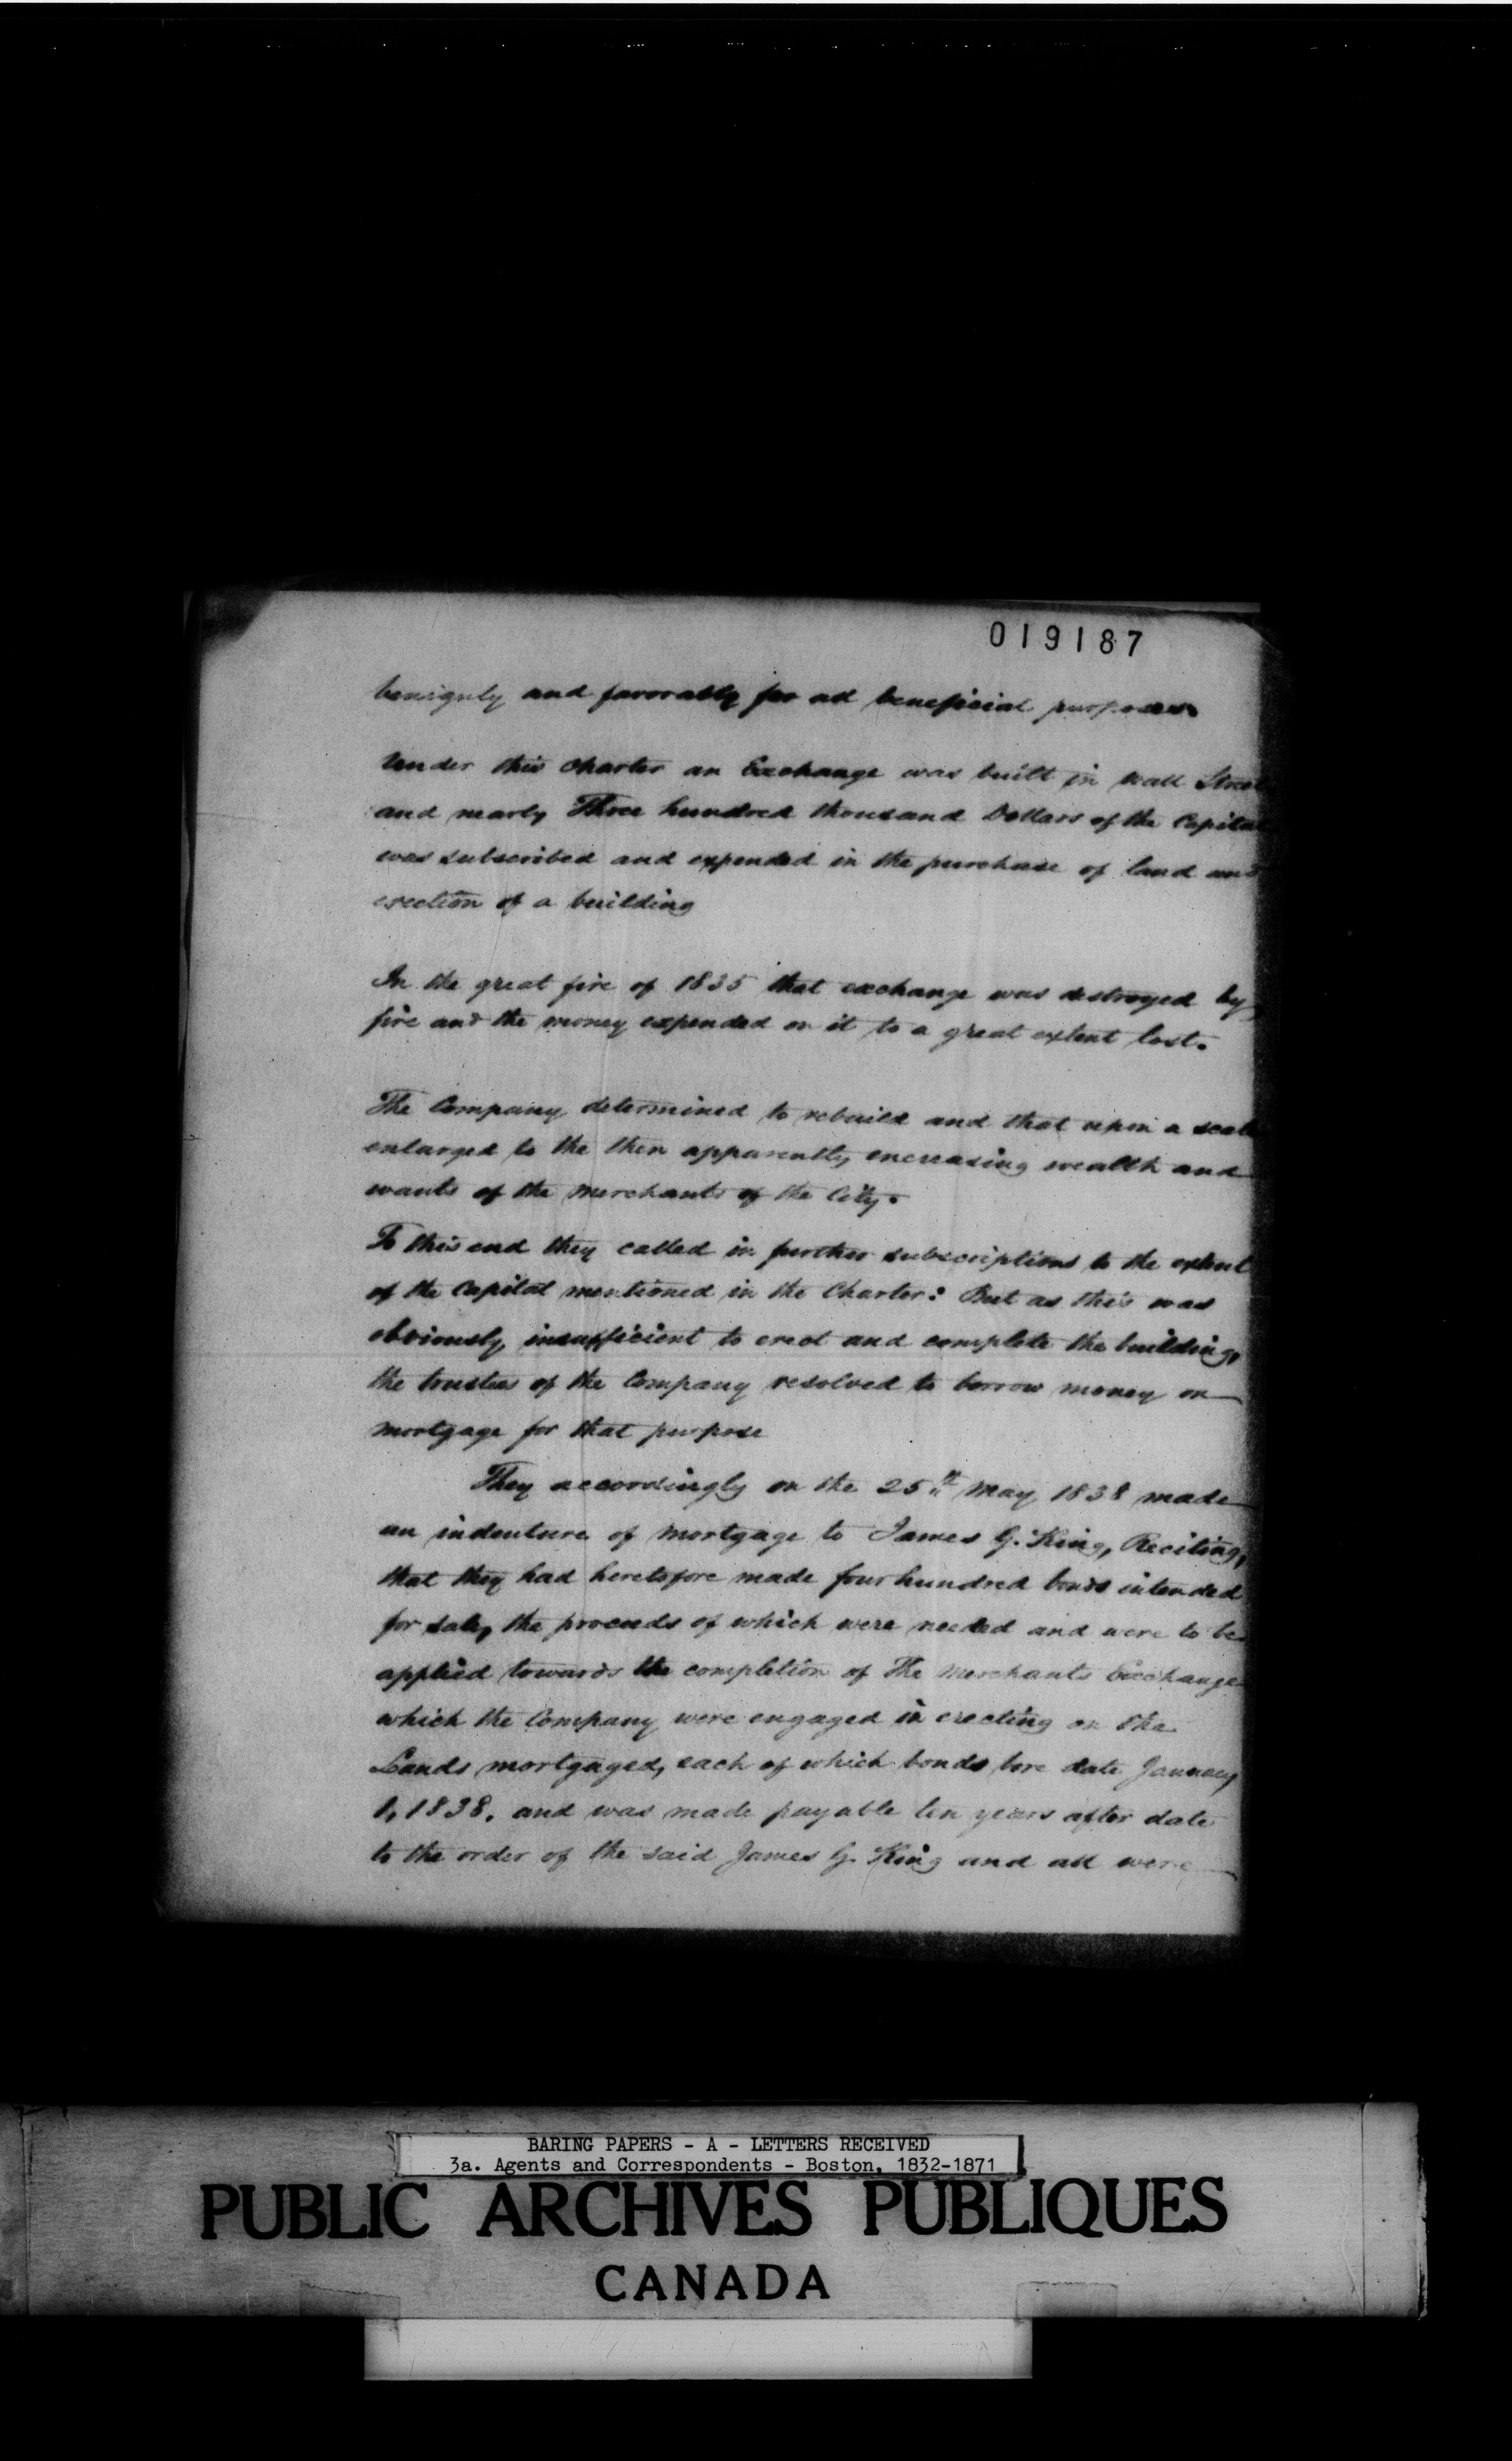 019187
benignly and favorably for all beneficial purposes.
Under this charter an Exchange was built in Wall Street
and nearly Three hundred thousand Dollars of the Capital
was subscribed and expended in the purchase of land and
erection of a building
In the great fire of 1835 that exchange was destroyed by
fire and the money expended on it to a great extent lost.
The Company determined to rebuild and that upon a scale
enlarged to the then apparently encreasing wealth and
wants of the merchants of the City.
To this end they called in further subscriptions to the extent
of the Capital mentioned in the Charter: But as this was
obviously insufficient to erect and complete the building,
the trustees of the Company resolved to borrow money on
mortgage for that purpose
They accordingly on the 25th May 1838 made
an indenture of mortgage to James G. King, Reciting,
that they had heretofore made four hundred bonds intended
for sale, the proceeds of which were needed and were to be
applied towards the completion of The Merchants Exchange
which the Company were engaged in erecting on the
Lands mortgaged, each of which bonds bore date January
1, 1838, and was made payable ten years after date
to the order of the said James G. King and all were
BARING PAPERS - A - LETTERS RECEIVED
3a. Agents and Correspondents - Boston, 1832-1871
PUBLIC ARCHIVES PUBLIQUES
CANADA